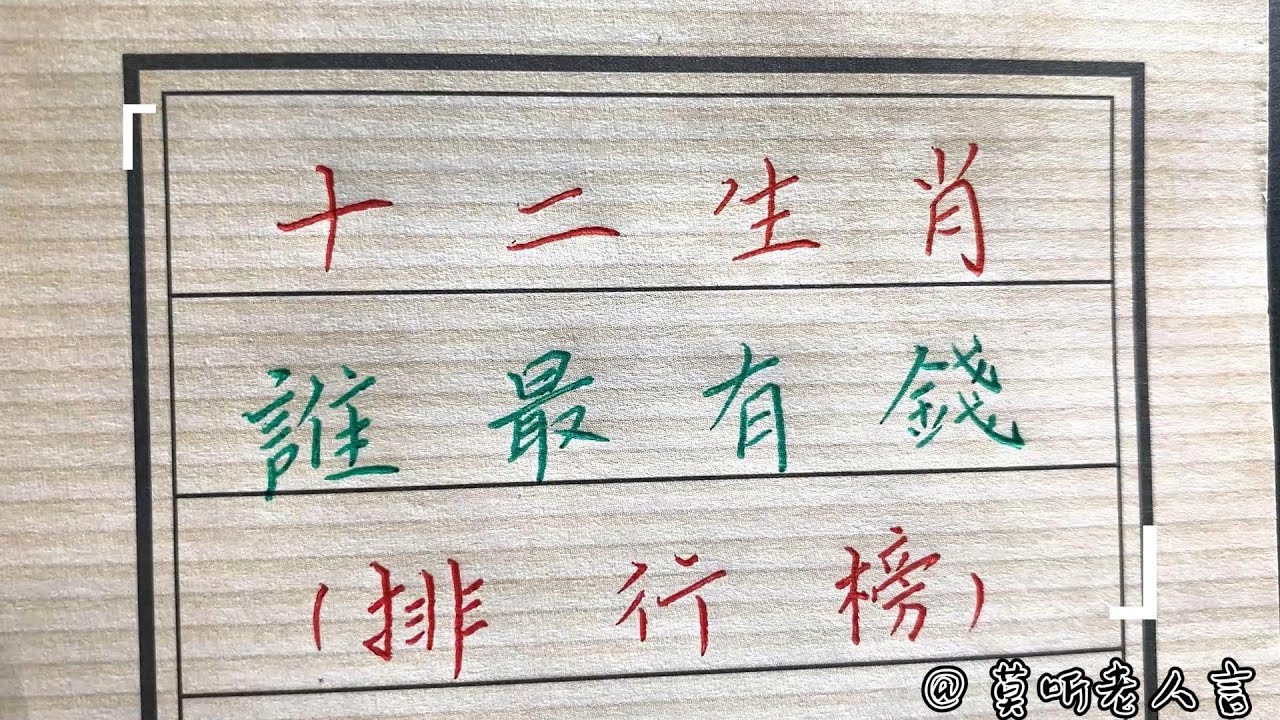 十二生肖
誰最有錢
(排行榜)
@ 莫听老人言